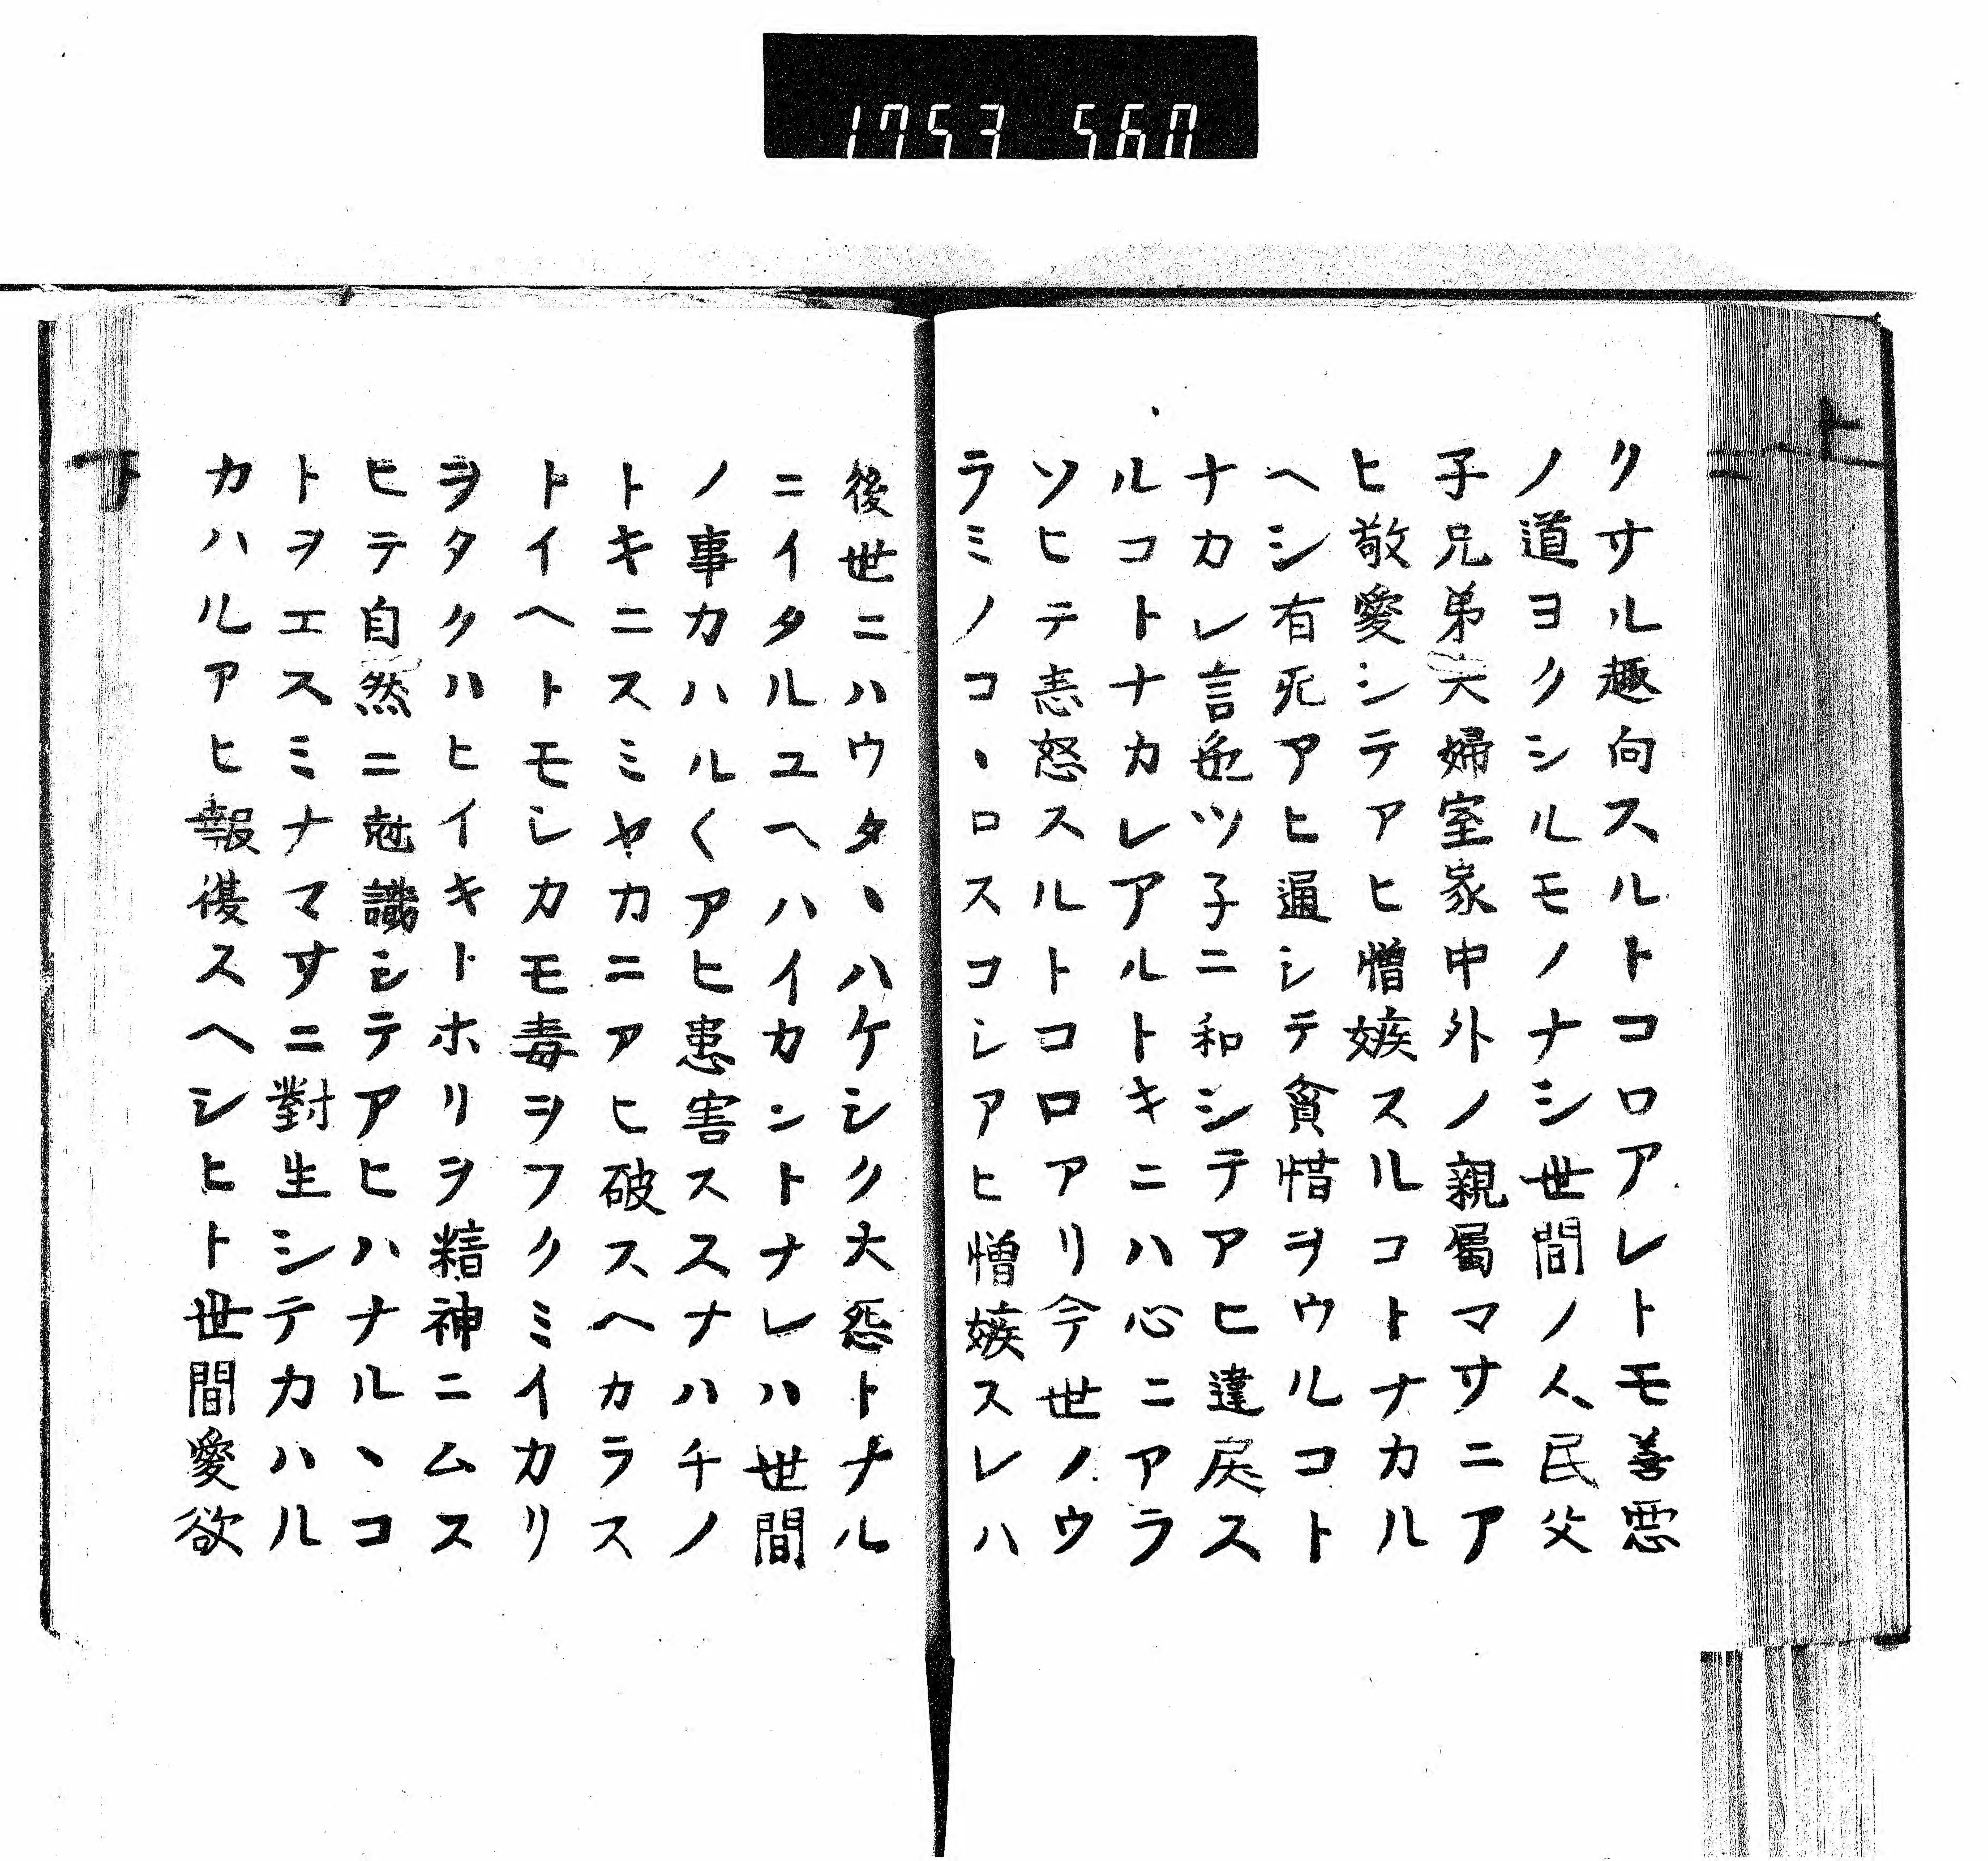 1753 560
上
クサル趣向スルトコロアレトモ善悪
ノ道ヨクシルモノナシ世間ノ人民父
子兄弟夫婦室家中外ノ親屬マサニア
ヒ敬愛シテアヒ憎嫉スルコトナカル
ヘシ有死アヒ通シテ貪惜ヲウルコト
ナカレ言色ツ子ニ和シテアヒ違戻ス
ルコトナカレアルトキニハ心ニアラ
ソヒテ恚怒スルトコロアリ今世ノウ
ラミノコヽロスコシアヒ憎嫉スレハ
後世ニハウタヽハケシク大怨トナル
ニイタルユヘハイカントナレハ世間
ノ事カハル〱アヒ患害ススナハチノ
トキニスミヤカニアヒ破スヘカラス
トイヘトモシカモ毒ヲフクミイカリ
ヲタクハヒイキトホリヲ精神ニムス
ヒテ自然ニ尅識シテアヒハナルヽコ
トヲエスミナマサニ對生シテカハル
カハルアヒ報復スヘシヒト世間愛欲
下